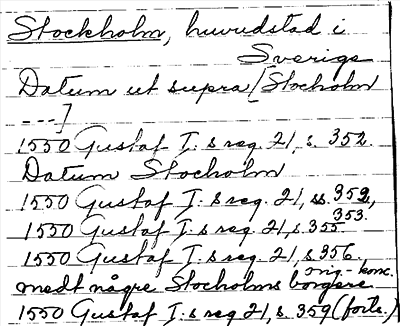 Stockholm, huvudstad i
Sverige
Datum ut supra [Stocholm
---]
1550 Gustaf I:s reg. 21, s. 352.
Datum Stocholm
1550 Gustaf I:s reg. 21, ss. 352,
353.
1550 Gustaf I:s reg. 21, s. 355
1550 Gustaf I:s reg. 21, s. 356.
orig. konc.
medt någre Stocholms borgere
1550 Gustaf I:s reg. 21, s. 359 (forts.)